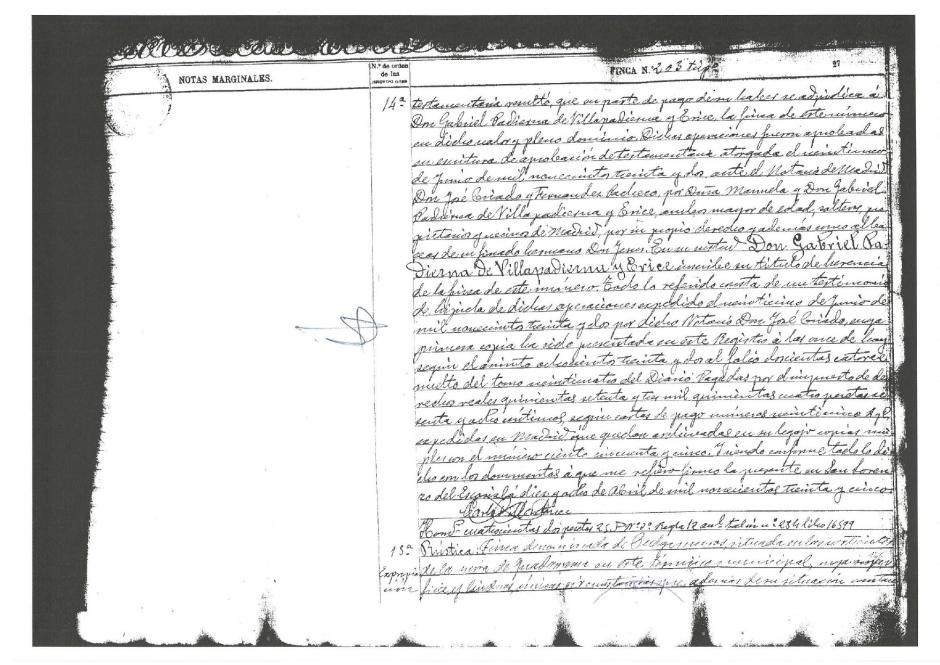 NOTAS MARGINALES.
N.º de orden
de las
FINCA N.º 203 trip.º
27
14ª
testamentaria resultó, que en parte de pago de su haber se adjudica á
Don Gabriel Padierna de Villapadierna y Erice, la finca de este número
en dicho valor y pleno dominio. Dichas operaciones fueron aprobadas
en escritura de aprobación de testamentaria otorgada el veinticinco
de Junio de mil novecientos treinta y dos, ante el Notario de Madrid
Don José Criado y Fernandez Pacheco, por Doña Manuela y Don Gabriel
Padierna de Villapadierna y Erice, ambos mayor de edad, solteros, pro
pietarios y vecinos de Madrid, por su propio derecho y además como alba
ceas de su finado hermano Don Jesus. En su virtud Don Gabriel Pa
dierna de Villapadierna y Erice inscribe su titulo de herencia
de la finca de este número. Todo lo referido consta de un testimonio
de hijuela de dichas operaciones expedido el veinticinco de Junio de
mil novecientos treinta y dos por dicho Notario Don José Criado, cuya
primera copia ha sido presentada en este Registro á las once de hoy
según el asiento ochocientos treinta y dos al folio doscientos catorce
vuelto del tomo veinticuatro del Diario. Pagadas por el impuesto de de
rechos reales quinientas setenta y tres mil quinientas cuatro pesetas se
senta y ocho centimos, según cartas de pago números
expedidas en Madrid que quedan archivadas en su legajo copias sim
ples con el número ciento cincuenta y cinco. Y siendo conforme todo lo di
cho con los documentos á que me refiero firmo la presente en San Loren
zo del Escorial á diez y ocho de Abril de mil novecientos treinta y cinco
Honº cuatrocientas dos pesetas 25. Nº 2º Regla 12 talón nº 284 libro 16599
15ª
Rústica: Finca denominada de situada en los
Expropia
de la de Guadarrama en este término municipal, cuya
ción
y linderos, circunstancias que además de su situación